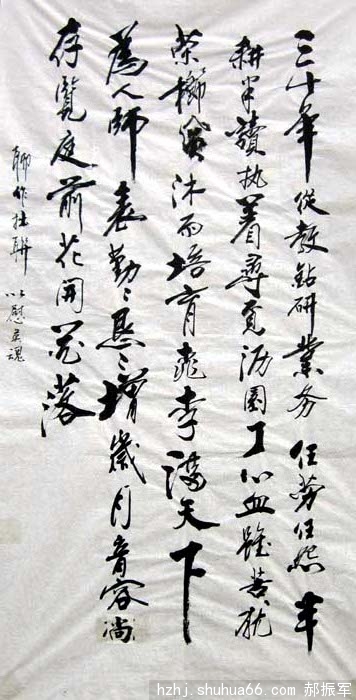 三十年從教鉆研業务任劳任怨半
耕半讀执着尋覓沥園丁心血雖苦犹
荣櫛風沐雨培育桃李滿天下
為人師表勤々恳々增歲月音容尚
存覽庭前花開花落
聊作挽聯
以慰灵魂
hzhj.shuhua66.com 郝振军